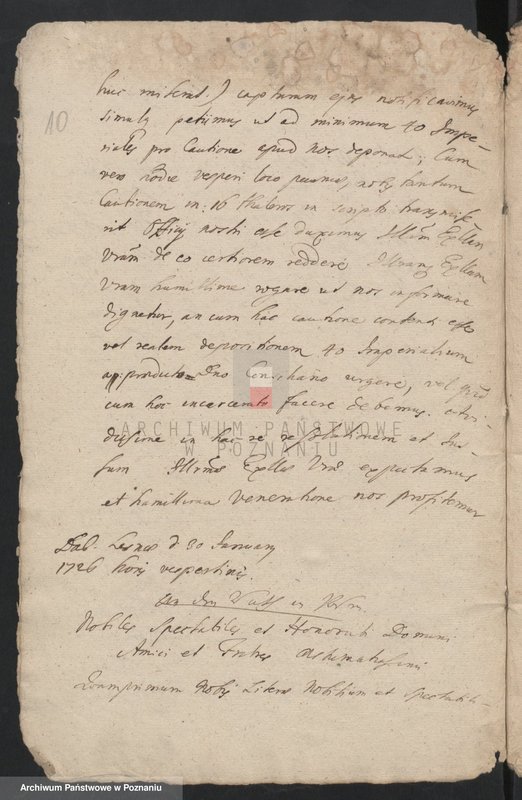 10
huc miserat) capturam ejus notificavimus
simulq petimus ut ad minimum 40 Impe-
riales pro Cautione apud nos deponat; Cum
vero hodie vesperi loco pecuniæ, nobis tantum
Cautionem in: 16 thaleros in scripto transmise
rit Officij nostri esse duximus Illm Excellen
vram de eo certiorem reddere Illmamq Excellam
vram humillime rogare ut nos informare
dignetur, an cum hac cautione contenti esse
vel realem depositionem 40 Imperialium
a producto Dno urgere, vel quid
cum hoc incarcerato facere debemus.
in hac re resolutionem et Jus-
sum Illmæ Excellæ Vræ expectamus
et humillima veneratione nos profitemur
Dab. Lesnæ d 30 January
1726 horis vespertinis.
An den Rath in
Nobiles Spectabiles et Honorati Domini
Amici et Fratres
Quamprimum Nobis Literæ Nobilium et Spectabili-
ARCHIWUM PAŃSTWOWE
W POZNANIU
Archiwum Państwowe w Poznaniu